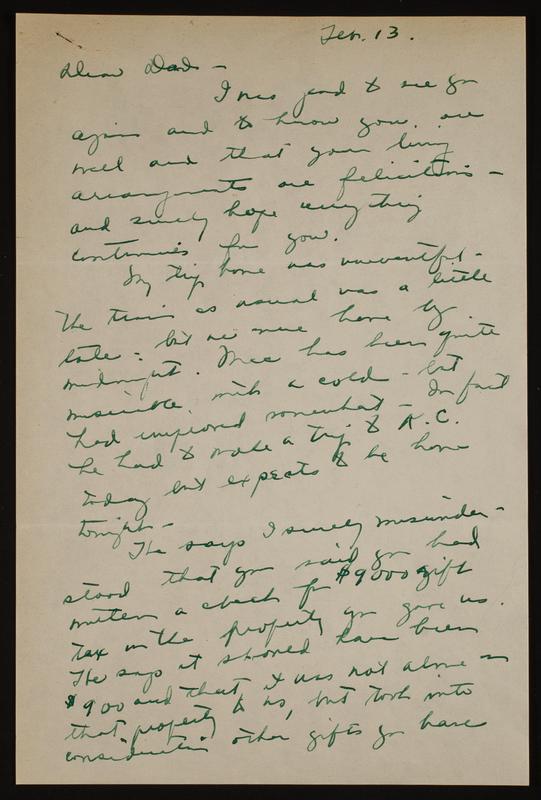 Feb. 13.
Dear Dad -
I was good to see you
again and to know you are
well and that your living
arrangements are felicitous -
and surely hope everything
continues for you.
My trip home was uneventful -
The train as usual was a little
late - but we were home by
midnight. Mac has been quite
miserable with a cold - but
had improved somewhat - In fact
he had to make a trip to K.C.
today but expects to be home
tonight -
He says I surely misunder-
stood that you said you had
written a check for $9000 gift
tax on the property you gave us.
He says it should have been
$900 and that it was not alone on
that property to us, but took into
consideration other gifts you have